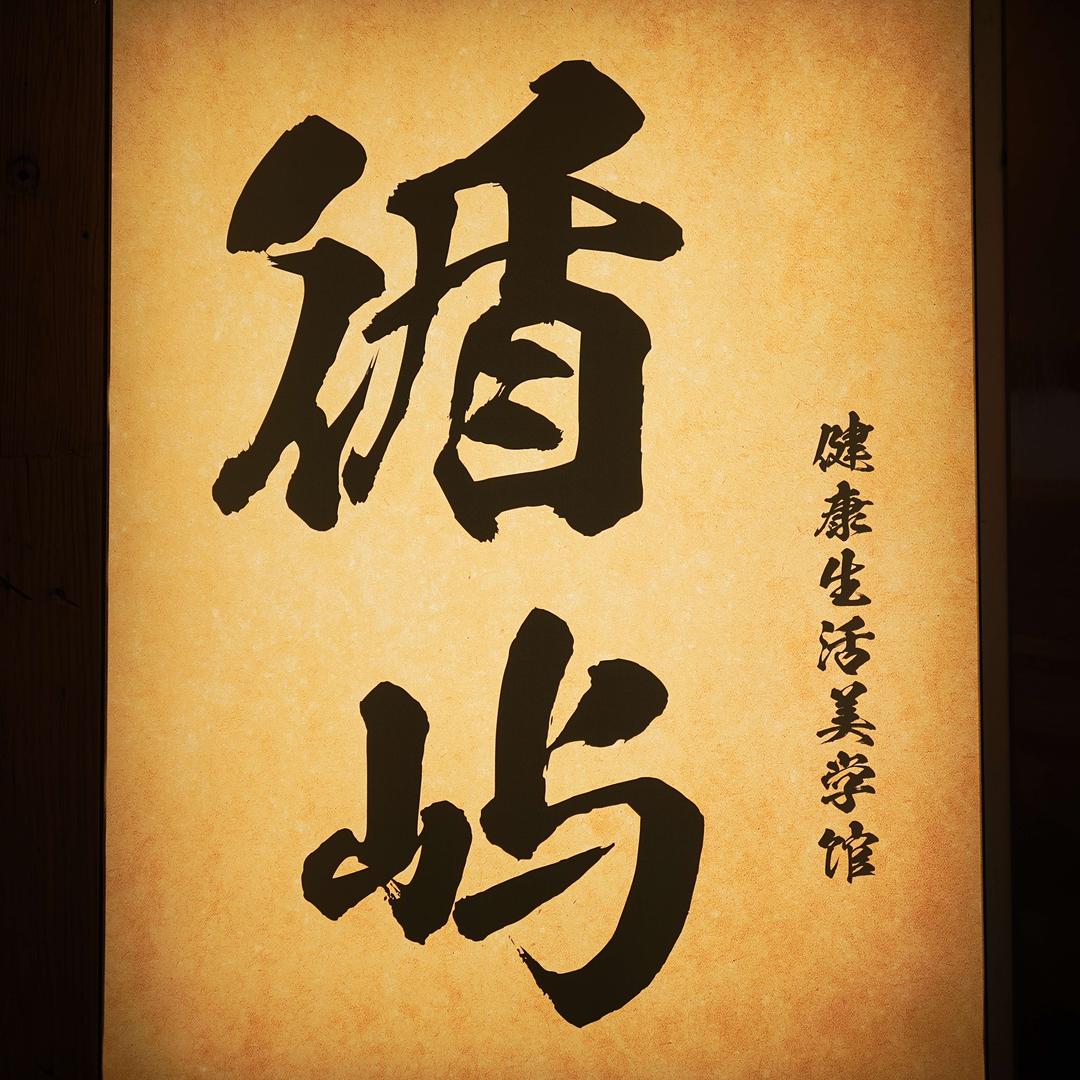 循屿
健康生活美学馆